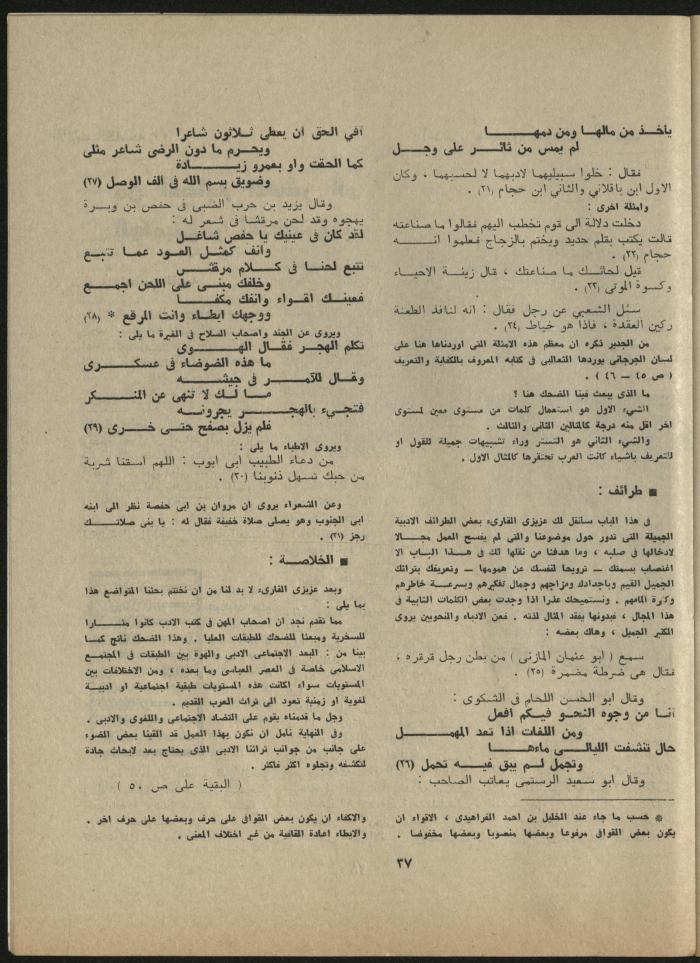 يأخذ من مالها ومن دمها
لم يمس من ثائر على وجل
فقال : خلوا سبيليهما لادبهما لا لحسبهما ، وكان
الاول ابن باقلاني والثاني ابن حجام (٢١) .
وامثلة اخرى :
دخلت دلالة الى قوم تخطب اليهم فقالوا ما صناعته
قالت يكتب بقلم حديد ويختم بالزجاج فعلموا انه
حجام (٢٢) .
قيل لحائك ما صناعتك ، قال زينة الاحياء
وكسوة الموتى (٢٣) .
سئل الشعبي عن رجل فقال : انه لنافذ الطعنة
ركين العقدة ، فاذا هو خياط (٢٤) .
من الجدير ذكره ان معظم هذه الامثلة التى اوردناها هنا على
لسان الجرجاني يوردها الثعالبى فى كتابه المعروف بالكفاية والتعريف
( ص ٤٥ ــ ٤٦ ) .
ما الذى يبعث فينا الضحك هنا ؟
الشيء الاول هو استعمال كلمات من مستوى معين لمستوى
اخر اقل منه درجة كالمثالين الثانى والثالث .
والشيء الثاني هو التستر وراء تشبيهات جميلة للقول او
للتعريف باشياء كانت العرب تحتقرها كالمثال الاول .
■ طرائف :
فى هذا الباب سأنقل لك عزيزى القارىء بعض الطرائف الادبية
الجميلة التى تدور حول موضوعنا والتى لم يفسح العمل مجالا
لادخالها فى صلبه ، وما هدفنا من نقلها لك فى هذا الباب الا
اغتصاب بسمتك ــ ترويحا لنفسك عن همومها ــ وتعريفك بتراثك
الجميل القيم وباجدادك ومزاجهم وجمال تفكيرهم وبسرعة خاطرهم
وكثرة المامهم . ونستميحك عذرا اذا وجدت بعض الكلمات النابية فى
هذا المجال ، فبدونها يفقد المثال لذته . فعن الادباء والنحويين يروى
الكثير الجميل ، وهاك بعضه :
سمع ( ابو عثمان المازنى ) من بطن رجل قرقره ،
فقال هى ضرطة مضمرة (٢٥) .
وقال ابو الحسن اللحام فى الشكوى :
أنا من وجوه النحو فيكم افعل
ومن اللغات اذا تعد المهمل
حال تنشفت الليالى ماءها
وتجمل لم يبق فيه تحمل (٢٦)
وقال ابو سعيد الرستمى يعاتب الصاحب :
* حسب ما جاء عند الخليل بن احمد الفراهيدى ، الاقواء ان
يكون بعض القوافى مرفوعا وبعضها منصوبا وبعضها مخفوضا .
أفي الحق ان يعطى ثلاثون شاعرا
ويحرم ما دون الرضى شاعر مثلى
كما الحقت واو بعمرو زيادة
وضويق بسم الله فى الف الوصل (٢٧)
وقال يزيد بن حرب الضبى فى حفص بن وبرة
يهجوه وقد لحن مرقشا فى شعر له :
لقد كان فى عينيك يا حفص شاغل
وأنف كمثل العود عما تتبع
تتبع لحنا فى كلام مرقش
وخلفك مبنى على اللحن اجمع
فعينك اقواء وانفك مكفأ
ووجهك ايطاء وانت المرقع * (٢٨)
ويروى عن الجند واصحاب السلاح فى الغيرة ما يلى :
تكلم الهجر فقال الهوى
ما هذه الضوضاء فى عسكرى
وقال للآمر فى جيشه
ما لك لا تنهى عن المنكر
فتجيء بالهجر يجرونه
فلم يزل يصفع حتى خرى (٢٩)
ويروى الاطباء ما يلى :
من دعاء الطبيب ابى ايوب : اللهم اسقنا شربة
من حبك تسهل ذنوبنا (٣٠) .
وعن الشعراء يروى ان مروان بن ابى حفصة نظر الى ابنه
ابى الجنوب وهو يصلى صلاة خفيفة فقال له : يا بنى صلاتك
رجز (٣١) .
■ الخلاصة :
وبعد عزيزى القارىء لا بد لنا من ان نختتم بحثنا المتواضع هذا
بما يلى :
مما تقدم نجد ان اصحاب المهن فى كتب الادب كانوا مثارا
للسخرية ومبعثا للضحك للطبقات العليا . وهذا الضحك ناتج كما
بينا من : البعد الاجتماعى الادبى والهوة بين الطبقات فى المجتمع
الاسلامى خاصة فى العصر العباسى وما بعده ، ومن الاختلافات بين
المستويات سواء اكانت هذه المستويات طبقية اجتماعية او ادبية
لغوية او زمنية تعود الى تراث العرب القديم .
وجل ما قدمناه يقوم على التضاد الاجتماعى واللغوى والادبى .
وفى النهاية نامل ان نكون بهذا العمل قد القينا بعض الضوء
على جانب من جوانب تراثنا الادبى الذى يحتاج بعد لابحاث جادة
لتكشفه وتجلوه اكثر فاكثر .
( البقية على ص ٥٠ )
والاكفاء ان يكون بعض القوافى على حرف وبعضها على حرف اخر .
والايطاء اعادة القافية من غير اختلاف المعنى .
٣٧